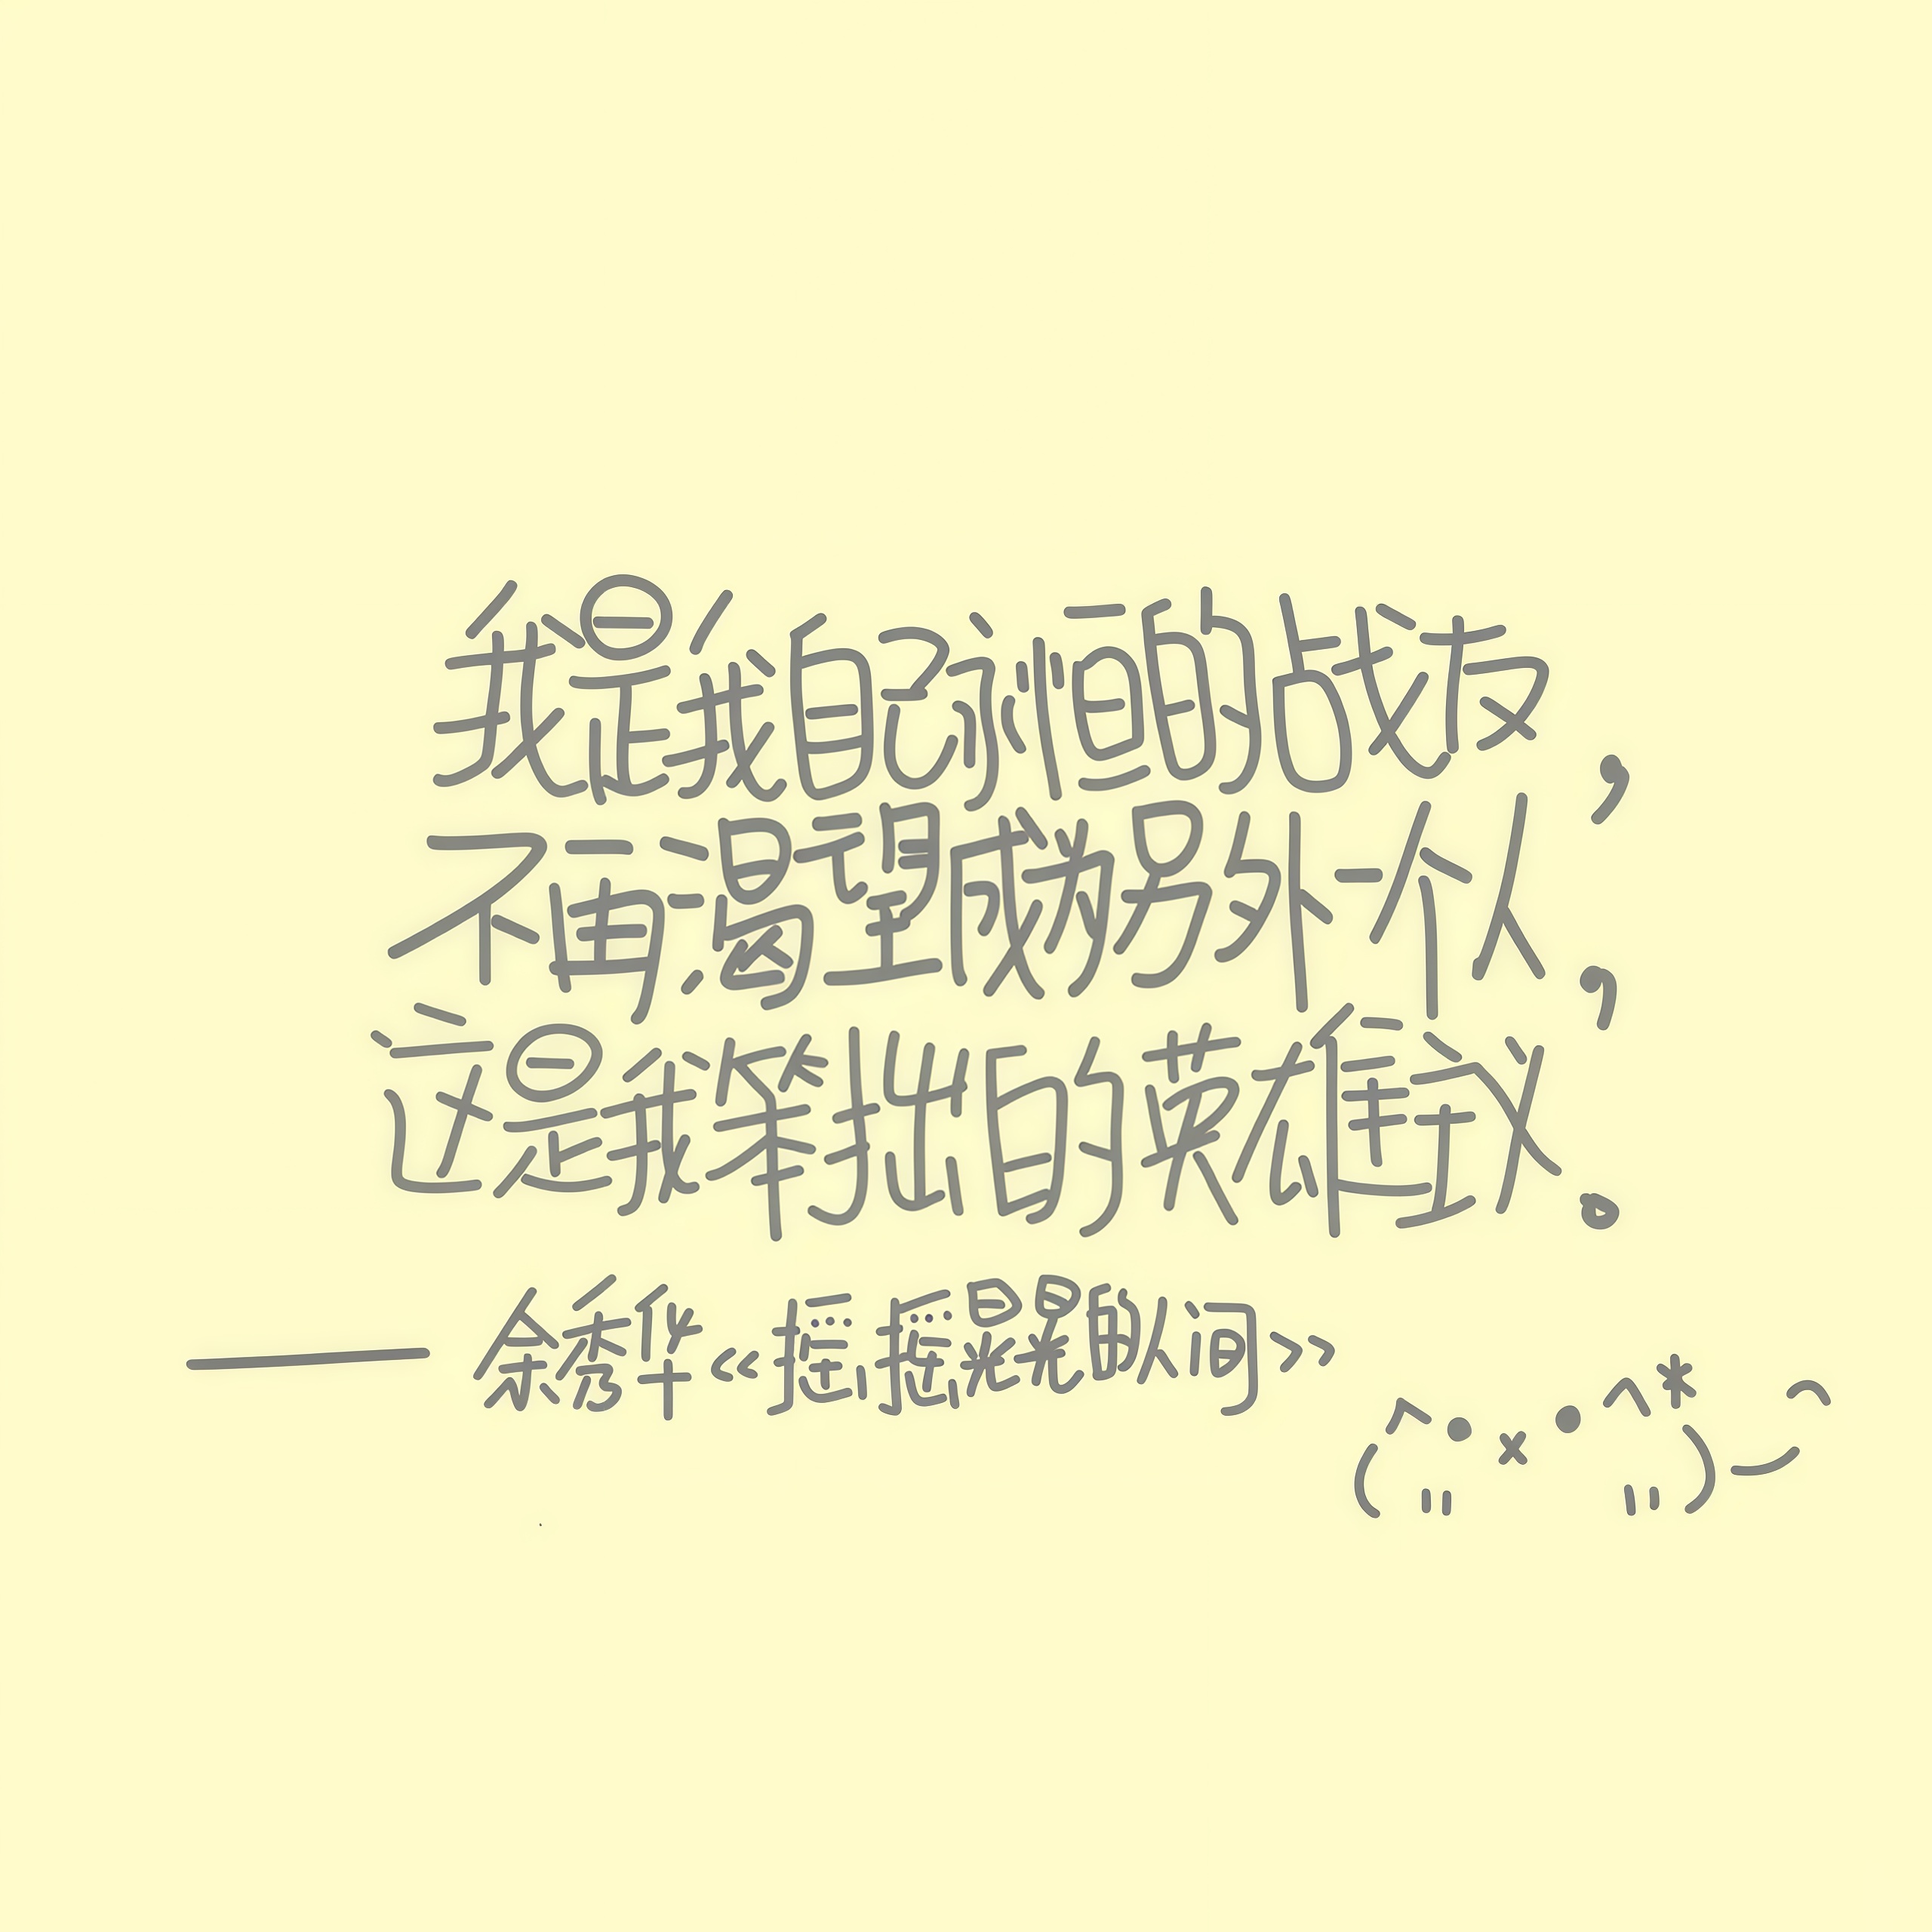 我是我自己河洹的战友,
不再渴望成为另外一个人,
这是我笨拙的英雄主义。
——余秀华《摇摇晃晃的人间》
(^•x•^)*